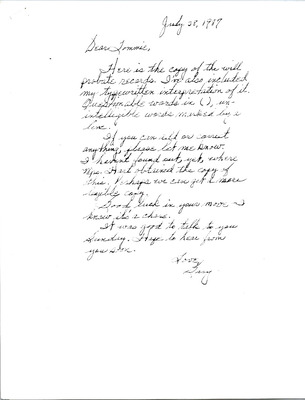 July 28, 1987
Dear Tommie,
Here is the copy of the will
probate records. I've also included
my typewritten interpretation of it.
Questionable words in ( ), un-
intelligible words marked by a
line.
If you can add or correct
anything, please let me know.
I haven't found out, yet, where
Mrs. obtained the copy of
this. Perhaps we can get a more
legible copy.
Good luck in your move - I
know it's a chore.
It was good to talk to you
Sunday. Hope to hear from
you soon.
Love,